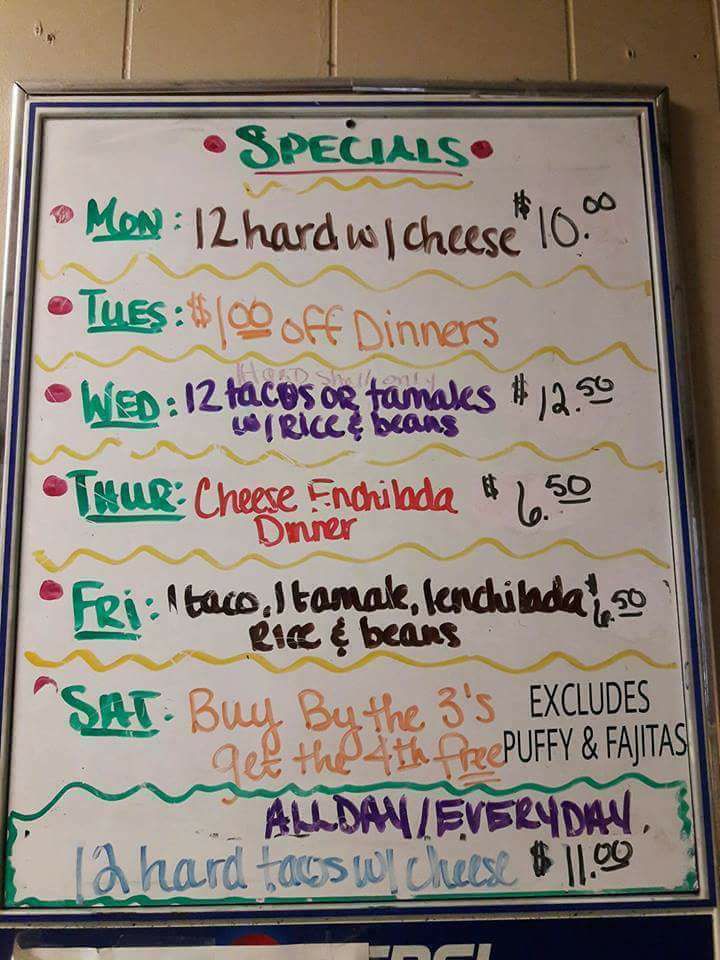 SPECIALS
MON: 12 hard w/cheese $10.00
TUES: $1.00 off Dinners
HARD shell only
WED: 12 tacos OR tamales $12.50
w/RICE & beans
THUR: Cheese Enchilada $6.50
Dinner
FRI: 1 taco, 1 tamale, 1enchilada $6.50
RICE & beans
SAT: Buy By the 3's EXCLUDES
get the 4th free PUFFY & FAJITAS
ALLDAY/EVERYDAY
12 hard tacos w/ cheese $11.00